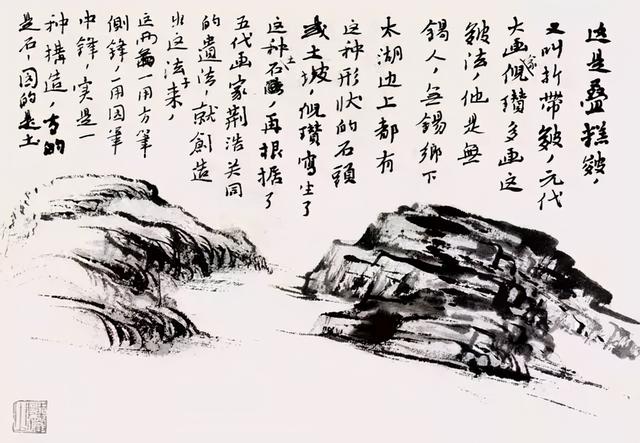 这是叠糕皴，
又叫折带皴，元代
大画家倪瓒多画这
皴法，他是無
锡人，無锡鄉下
太湖边上都有
这种形状的石頭
或土坡，倪瓒寫生了
这种石土，再根据了
五代画家荆浩关同
的遺法，就創造
出这法子来，
这两幅一用方筆
側鋒，一用圆筆
中锋，实是一
种構造，方的
是石，圆的是土